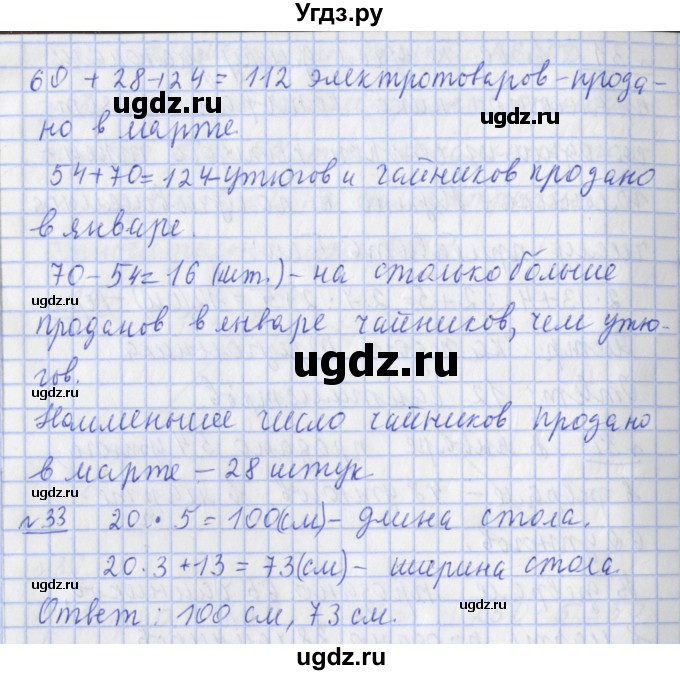 Угдз.ру
60 + 28+24 = 112 электротоваров-прода-
но в марте.
54+70=124-утюгов и чайников продано
в январе.
70-54=16 (шт.)-на столько больше
проданов в январе чайников, чем утю-
гов.
Наименьшее число чайников продано
в марте - 28 штук.
№33 20 · 5 = 100(см)- длина стола.
20·3+13 = 73(см)- ширина стола.
Ответ: 100 см, 73 см.
ugdz.ru
ugdz.ru
ugdz.ru
ugdz.ru
ugdz.ru
ugdz.ru
ugdz.ru
ugdz.ru
ugdz.ru